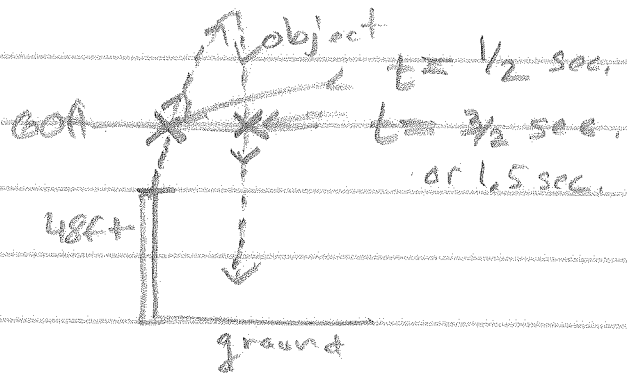 object
t = 1/2 sec.
60ft
t = 3/2 sec.
or 1.5 sec.
48ft
ground